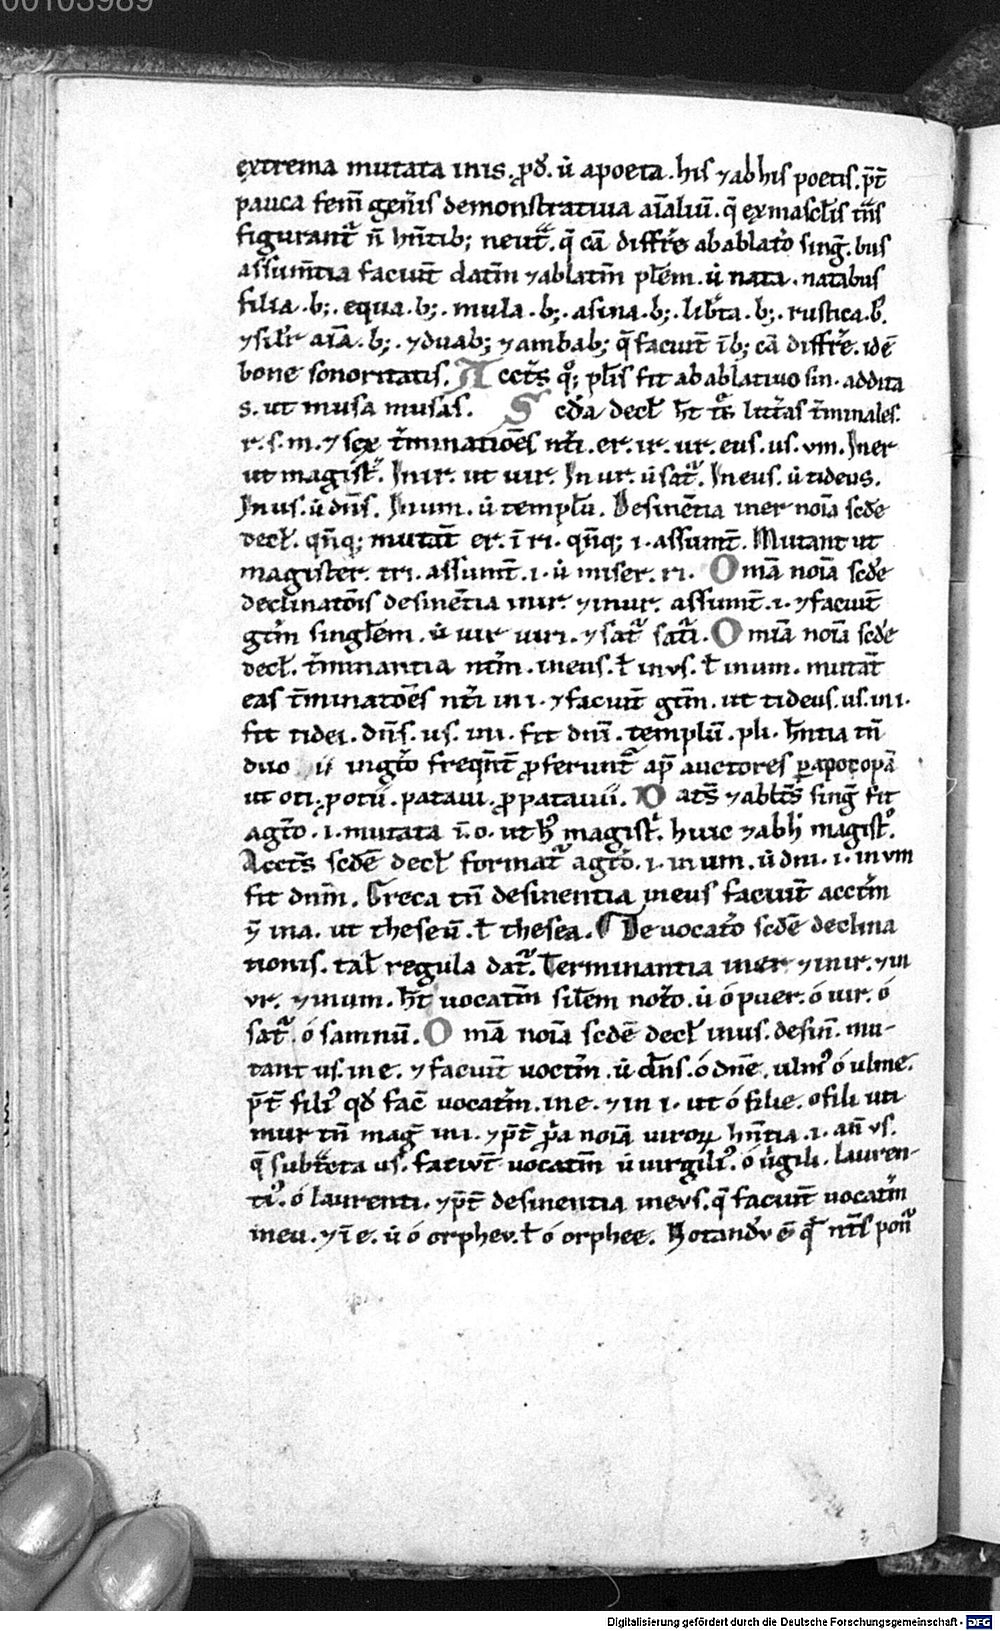 00103989
extrema mutata in is. ꝓđ. u̇ a poeta. his ⁊ ab his poetis. p̄t̄
pauca fem̄ gen̄is demonstratiua aīaliū. q̄ ex mascl̄is tn̄s
figurant̄ n̄ hn̄tib; neut̄. q̄ cā diffr̄e ab ablat̄o sinḡ. bus
assum̄tia faciūt datm̄ ⁊ ablatm̄ pl̄em. u̇ nata. natabus
filia. b;. equa. b;. mula. b;. asina. b;. lib̄ta. b;. rustica. b.
⁊ sil̄r aīa. b;. ⁊ duab; ⁊ ambab; q̄ faciūt ī b; cā diffr̄e. idē
bone sonoritatis. Acct̄s qͦ; pl̄is fit ab ablatiuo sin. addita
s. ut musa musas. Scđa decł h̄t t̄s litt̄as t̄minales.
r. s. m. ⁊ sex t̄minatiōes nt̄i. er. ir. ur. eus. us. um. In er
ut magist̄. In ir. ut uir. In ur. u̇ sat̄. In eus. u̇ tideus.
In us. u̇ dn̄s. In um. u̇ templū. Desinētia in er noīa scđe
decł. qn̄q; mutāt er. ī ri. qn̄q; i. assumt̄. Mutant ut
magister. tri. assumt̄. i. u̇ miser. ri. Omā noīa scđe
declinatōis desinētia in ir. ⁊ in ur. assumt̄. i. ⁊ faciūt
gtm̄ singl̄em. u̇ uir uiri. ⁊ sat̄ sat̄i. Omīa noīa scđe
decł. t̄minantia ntm̄. in eus. ł in us. ł in um. mutāt
eas t̄minatōes nt̄i in i. ⁊ faciūt gtm̄. ut tideus. us. in i.
fit tidei. dn̄s. us. in i. fit dnī. templū. pli. hn̄tia tn̄
duo ii in gt̄o freqn̄t̄ ꝓferunt̄ ap̄ auctores ꝑ apocopā
ut oti. ꝓ otii. pataui. ꝓ patauii. Dats̄ ⁊ ablts̄ sinḡ fit
a gt̄o. i. mutata ī. o. ut h̄ magist̄. huic ⁊ ab h̄ magist̄.
Acct̄s scđe decł format̄ a gt̄o. i. in um. u̇ dnī. i. in um
fit dnm̄. Greca tn̄ desinentia in eus faciūt acctm̄
ī in a. ut theseū. ł thesea. De uocat̄o scđe declina
tionis. tał regula dat̄. Terminantia in er ⁊ in ir. ⁊ in
ur. ⁊ in um. h̄t uocatm̄ sil̄em nōto. u̇ ó puer. ó uir. ó
sat̄. ó samnū. Omā noīa scđe decł in us. desin̄. mu-
tant us. in e. ⁊ faciūt uoctm̄. u̇ dn̄s. ó dn̄e. ulm᷒ ó ulme.
p̄t̄ fili᷒ qđ fac̄ uocatm̄. in e. ⁊ in i. ut ó filie. o fili uti
mur tn̄ maḡ in i. ⁊ p̄t̄ p̄a noīa uiroꝝ hn̄tia. i. an̄ us.
q̄ subt̄cta us. faciūt uocatm̄ u̇ uirgili᷒. ó uirgili. lauren-
ti᷒. ó laurenti. ⁊ p̄t̄ desinentia in eus. q̄ faciūt uocatm̄
in eu. ⁊ ī e. u̇ ó orpheu. ł ó orphee. Notandū ē qđ nt̄s pon̄
Digitalisierung gefördert durch die Deutsche Forschungsgemeinschaft - DFG